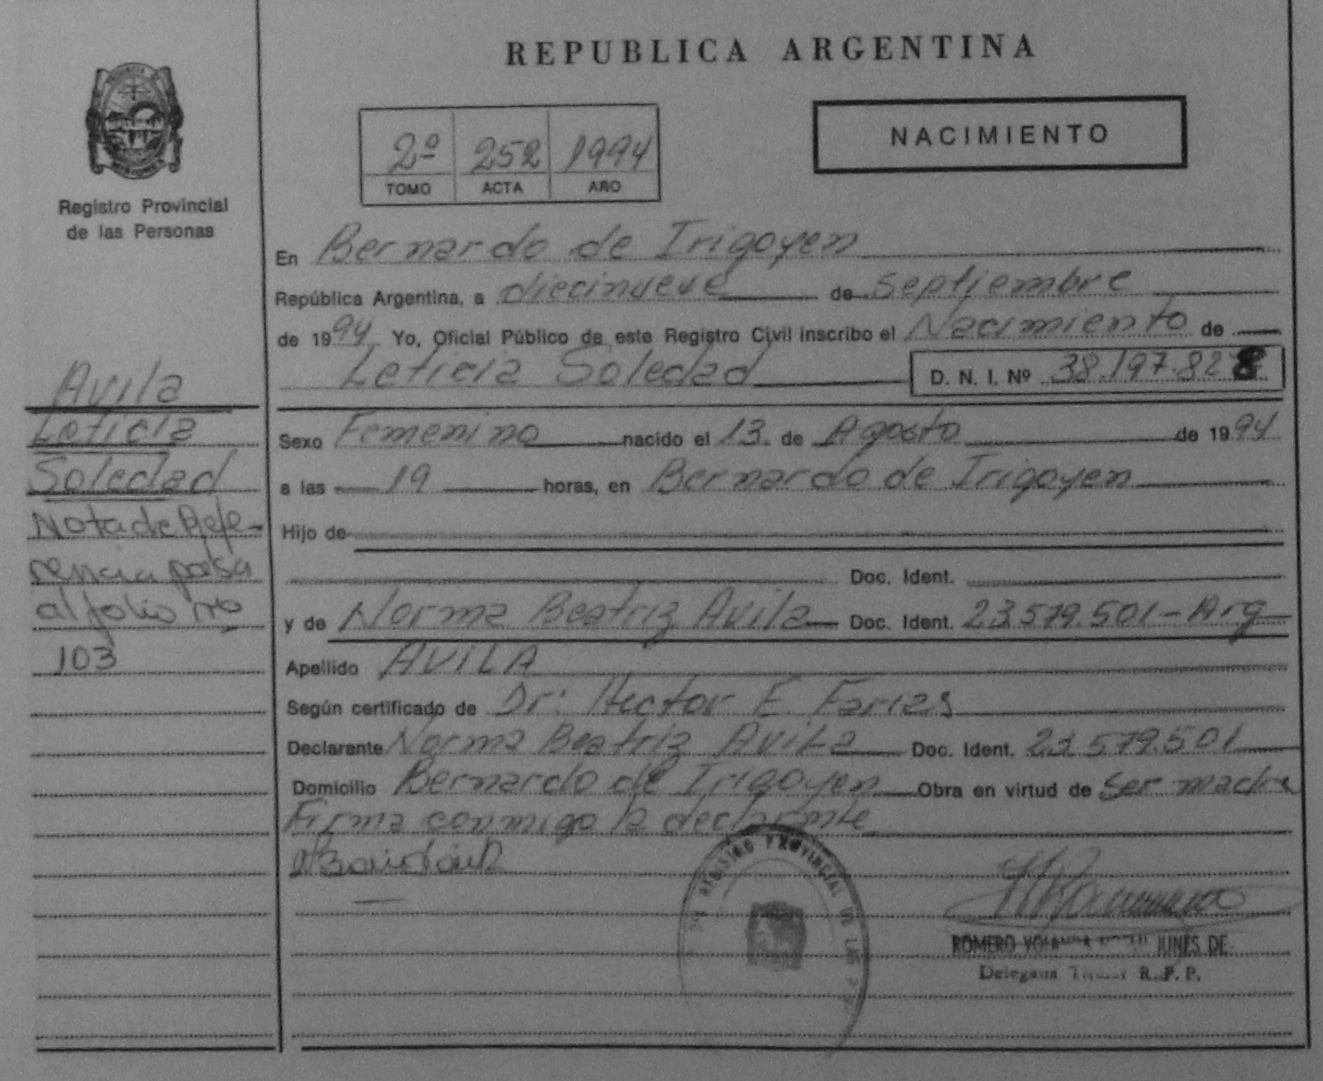 REPUBLICA ARGENTINA
Registro Provincial
de las Personas
2º 252 1994
TOMO ACTA AÑO
NACIMIENTO
En Bernardo de Irigoyen
República Argentina, a diecinueve de septiembre
de 1994 Yo, Oficial Público de este Registro Civil inscribo el Nacimiento de
Leticia Soledad D. N. I. Nº 38.197.828
Sexo Femenino nacido el 13. de Agosto de 1994
a las 19 horas, en Bernardo de Irigoyen
Hijo de
Doc. Ident.
y de Norma Beatriz Avila Doc. Ident. 23.579.501-Arg
Apellido AVILA
Según certificado de Dr: Hector E Farias
Declarante Norma Beatriz Avila Doc. Ident. 23.579.501
Domicilio Bernardo de Irigoyen Obra en virtud de ser madre
Firma conmigo la declarante
Avila
Leticia
Soledad
Nota de Refe-
rencia pasa
al folio no
103
REGISTRO PROVINCIAL DE LAS
ROMERO JUNES DE
Delegada R. P. P.